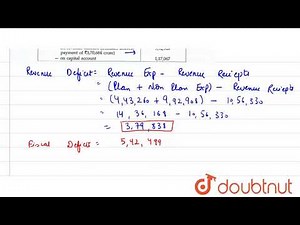 payment of ₹3,70,066 crore)
— on capital account
1,37,067
Revenue Deficit: Revenue Exp - Revenue Reciepts
= (Plan + Non Plan Exp) - Revenue Reciepts
= (4,43,260 + 9,92,908) - 10,56,330
= 14,36,168 - 10,56,330
= 3,79,838
Fiscal Deficit = 5,42,499
doubtnut